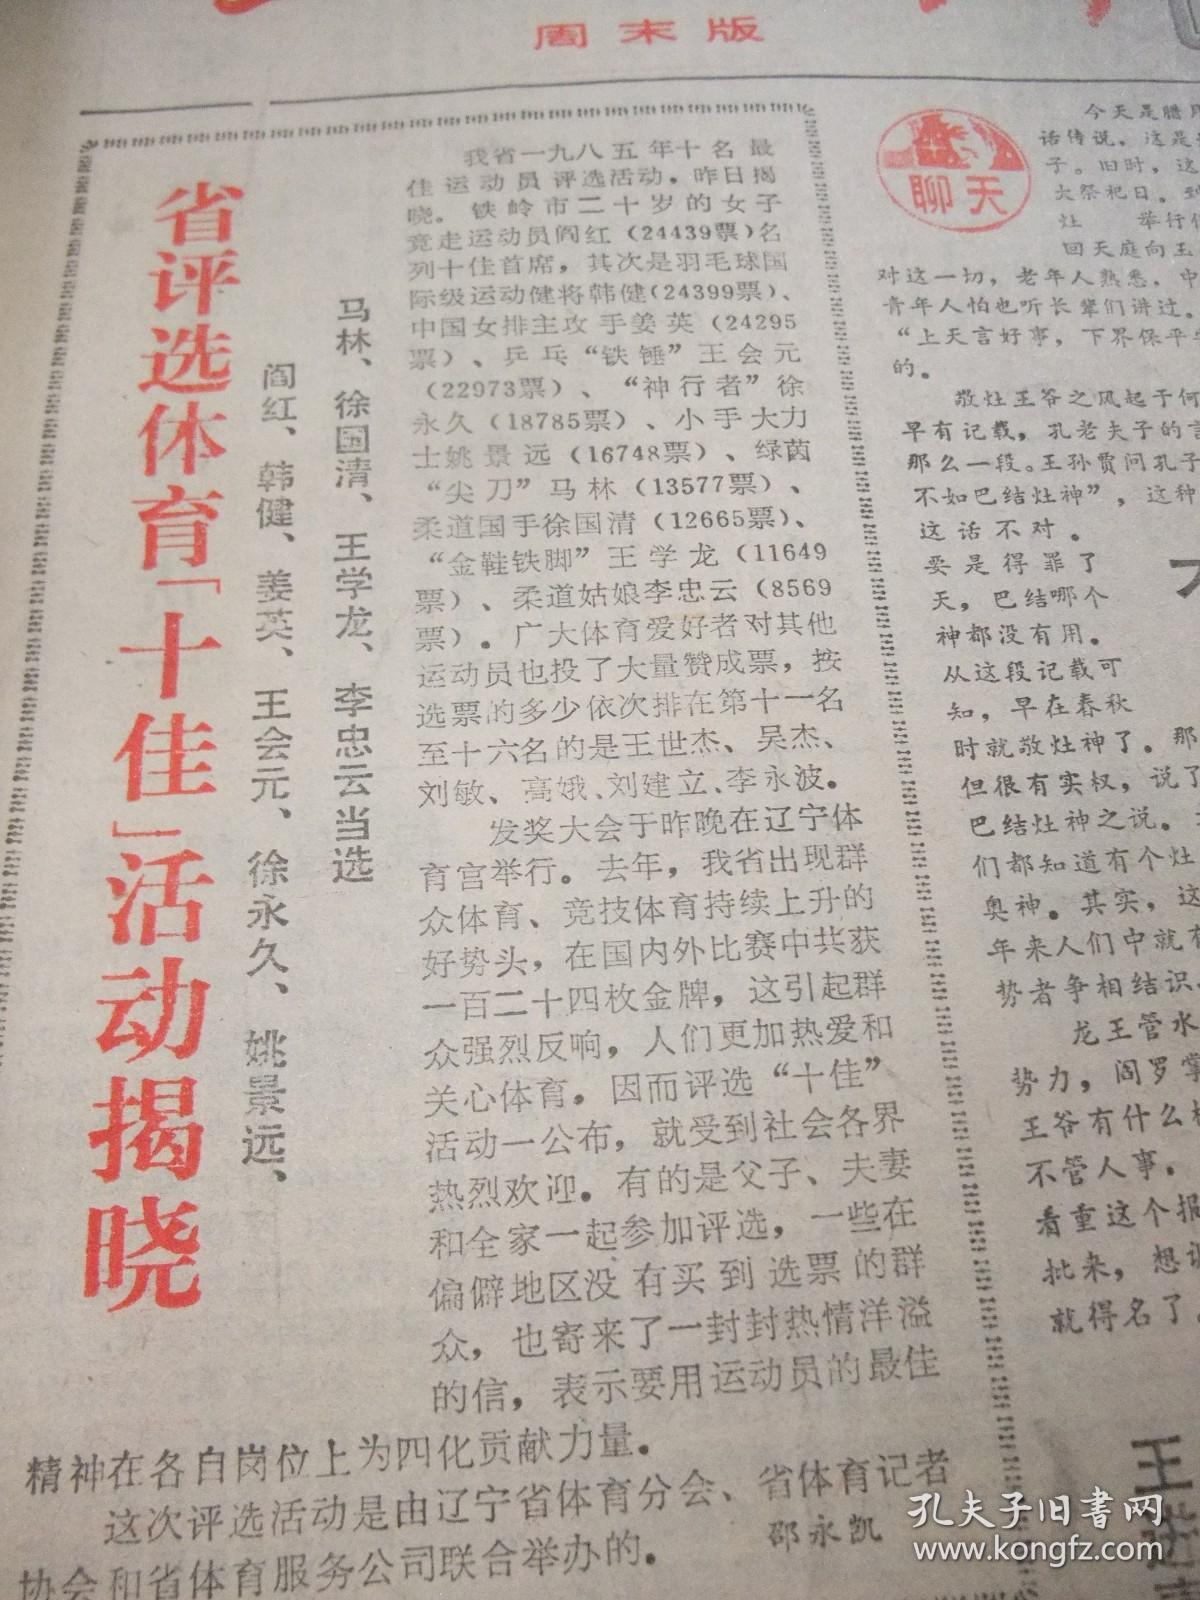 周末版
省评选体育「十佳」活动揭晓
阎红、韩健、姜英、王会元、徐永久、姚景远、
马林、徐国清、王学龙、李忠云当选
我省一九八五年十名最
佳运动员评选活动，昨日揭
晓。铁岭市二十岁的女子
竞走运动员阎红（24439票）名
列十佳首席，其次是羽毛球国
际级运动健将韩健（24399票）、
中国女排主攻手姜英（24295
票）、乒乓“铁锤”王会元
（22973票）、“神行者”徐
永久（18785票）、小手大力
士姚景远（16748票）、绿茵
“尖刀”马林（13577票）、
柔道国手徐国清（12665票）、
“金鞋铁脚”王学龙（11649
票）、柔道姑娘李忠云（8569
票）。广大体育爱好者对其他
运动员也投了大量赞成票，按
选票的多少依次排在第十一名
至十六名的是王世杰、吴杰、
刘敏、高娥、刘建立、李永波。
发奖大会于昨晚在辽宁体
育宫举行。去年，我省出现群
众体育、竞技体育持续上升的
好势头，在国内外比赛中共获
一百二十四枚金牌，这引起群
众强烈反响，人们更加热爱和
关心体育。因而评选“十佳”
活动一公布，就受到社会各界
热烈欢迎。有的是父子、夫妻
和全家一起参加评选，一些在
偏僻地区没有买到选票的群
众，也寄来了一封封热情洋溢
的信，表示要用运动员的最佳
精神在各自岗位上为四化贡献力量。
这次评选活动是由辽宁省体育分会、省体育记者
协会和省体育服务公司联合举办的。
邵永凯
聊天
今天是腊月
话传说，这是
子。旧时，这
大祭祀日。到
灶 举行
回天庭向玉
对这一切，老年人熟悉，中
青年人怕也听长辈们讲过。
“上天言好事，下界保平
的。
敬灶王爷之风起于何
早有记载，孔老夫子的言
那么一段。王孙贾问孔子
不如巴结灶神”，这种
这话不对。
要是得罪了
天，巴结哪个
神都没有用。
从这段记载可
知，早在春秋
时就敬灶神了。那
但很有实权，说了
巴结灶神之说。
们都知道有个灶
奥神。其实，这
年来人们中就有
势者争相结识、
龙王管水
势力，阎罗掌
王爷有什么
不管人事。
看重这个报
批来，想
就得名了。
王
孔夫子旧书网
www.kongfz.com